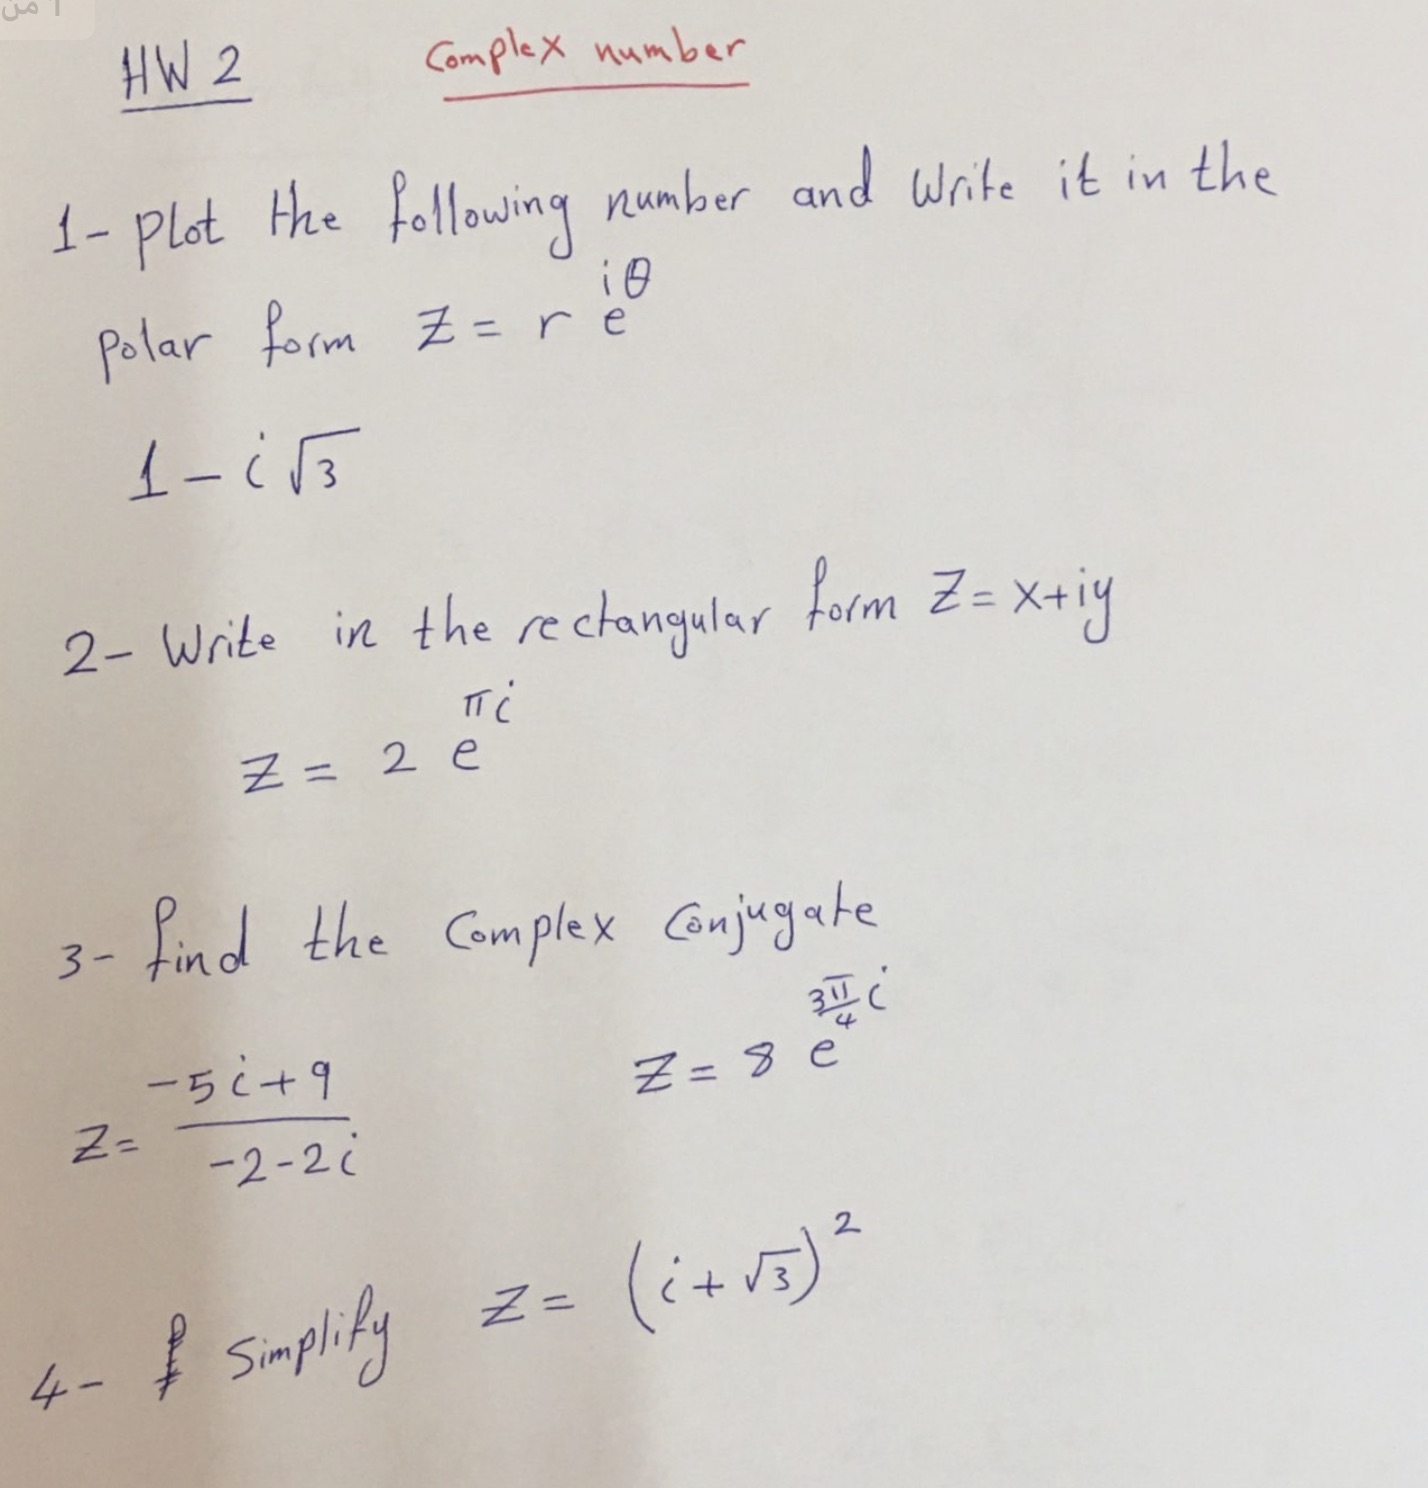 1 من
HW 2 Complex number
1- plot the following number and write it in the
polar form z = r e^{iθ}
1 - i √3
2- Write in the rectangular form z = x+iy
z = 2 e^{πi}
3- find the complex conjugate
z = \frac{-5i+9}{-2-2i} z = 8 e^{\frac{3π}{4}i}
4- simplify z = (i + √3)^2